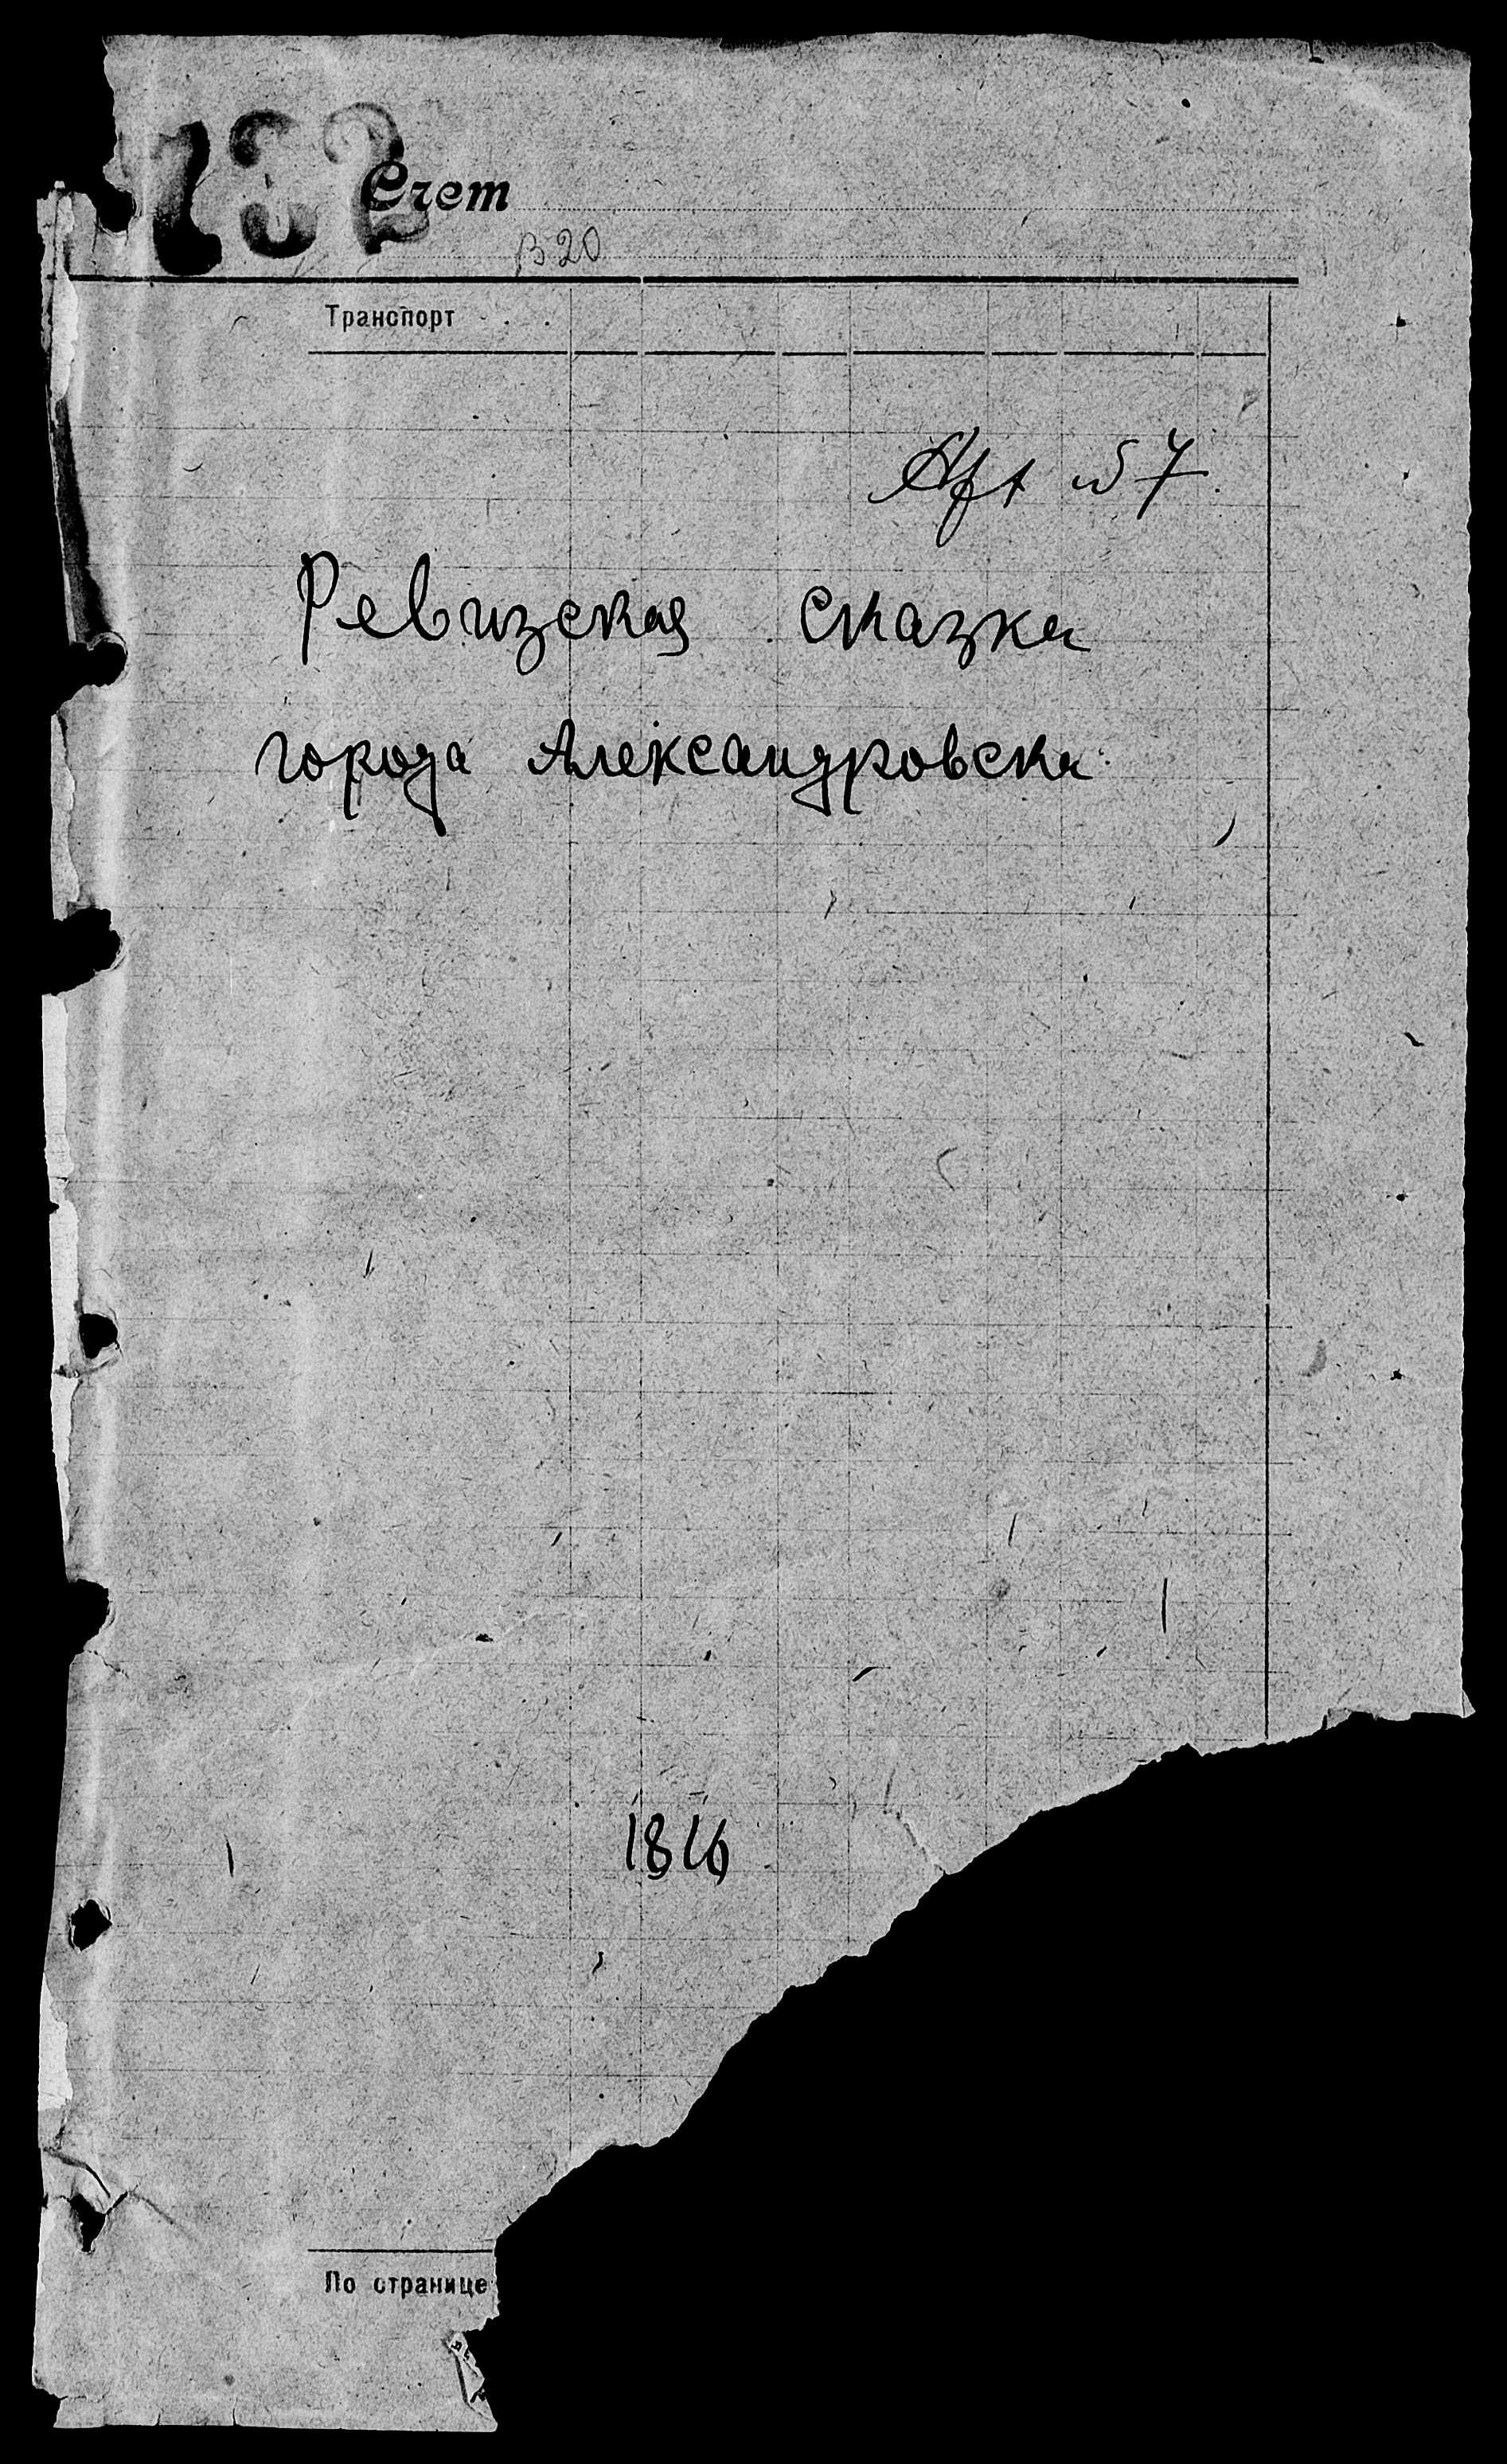 132
Счет
В 20
Транспорт . .
Арх № 7
Ревизская сказка
города Александровска
1816
По странице